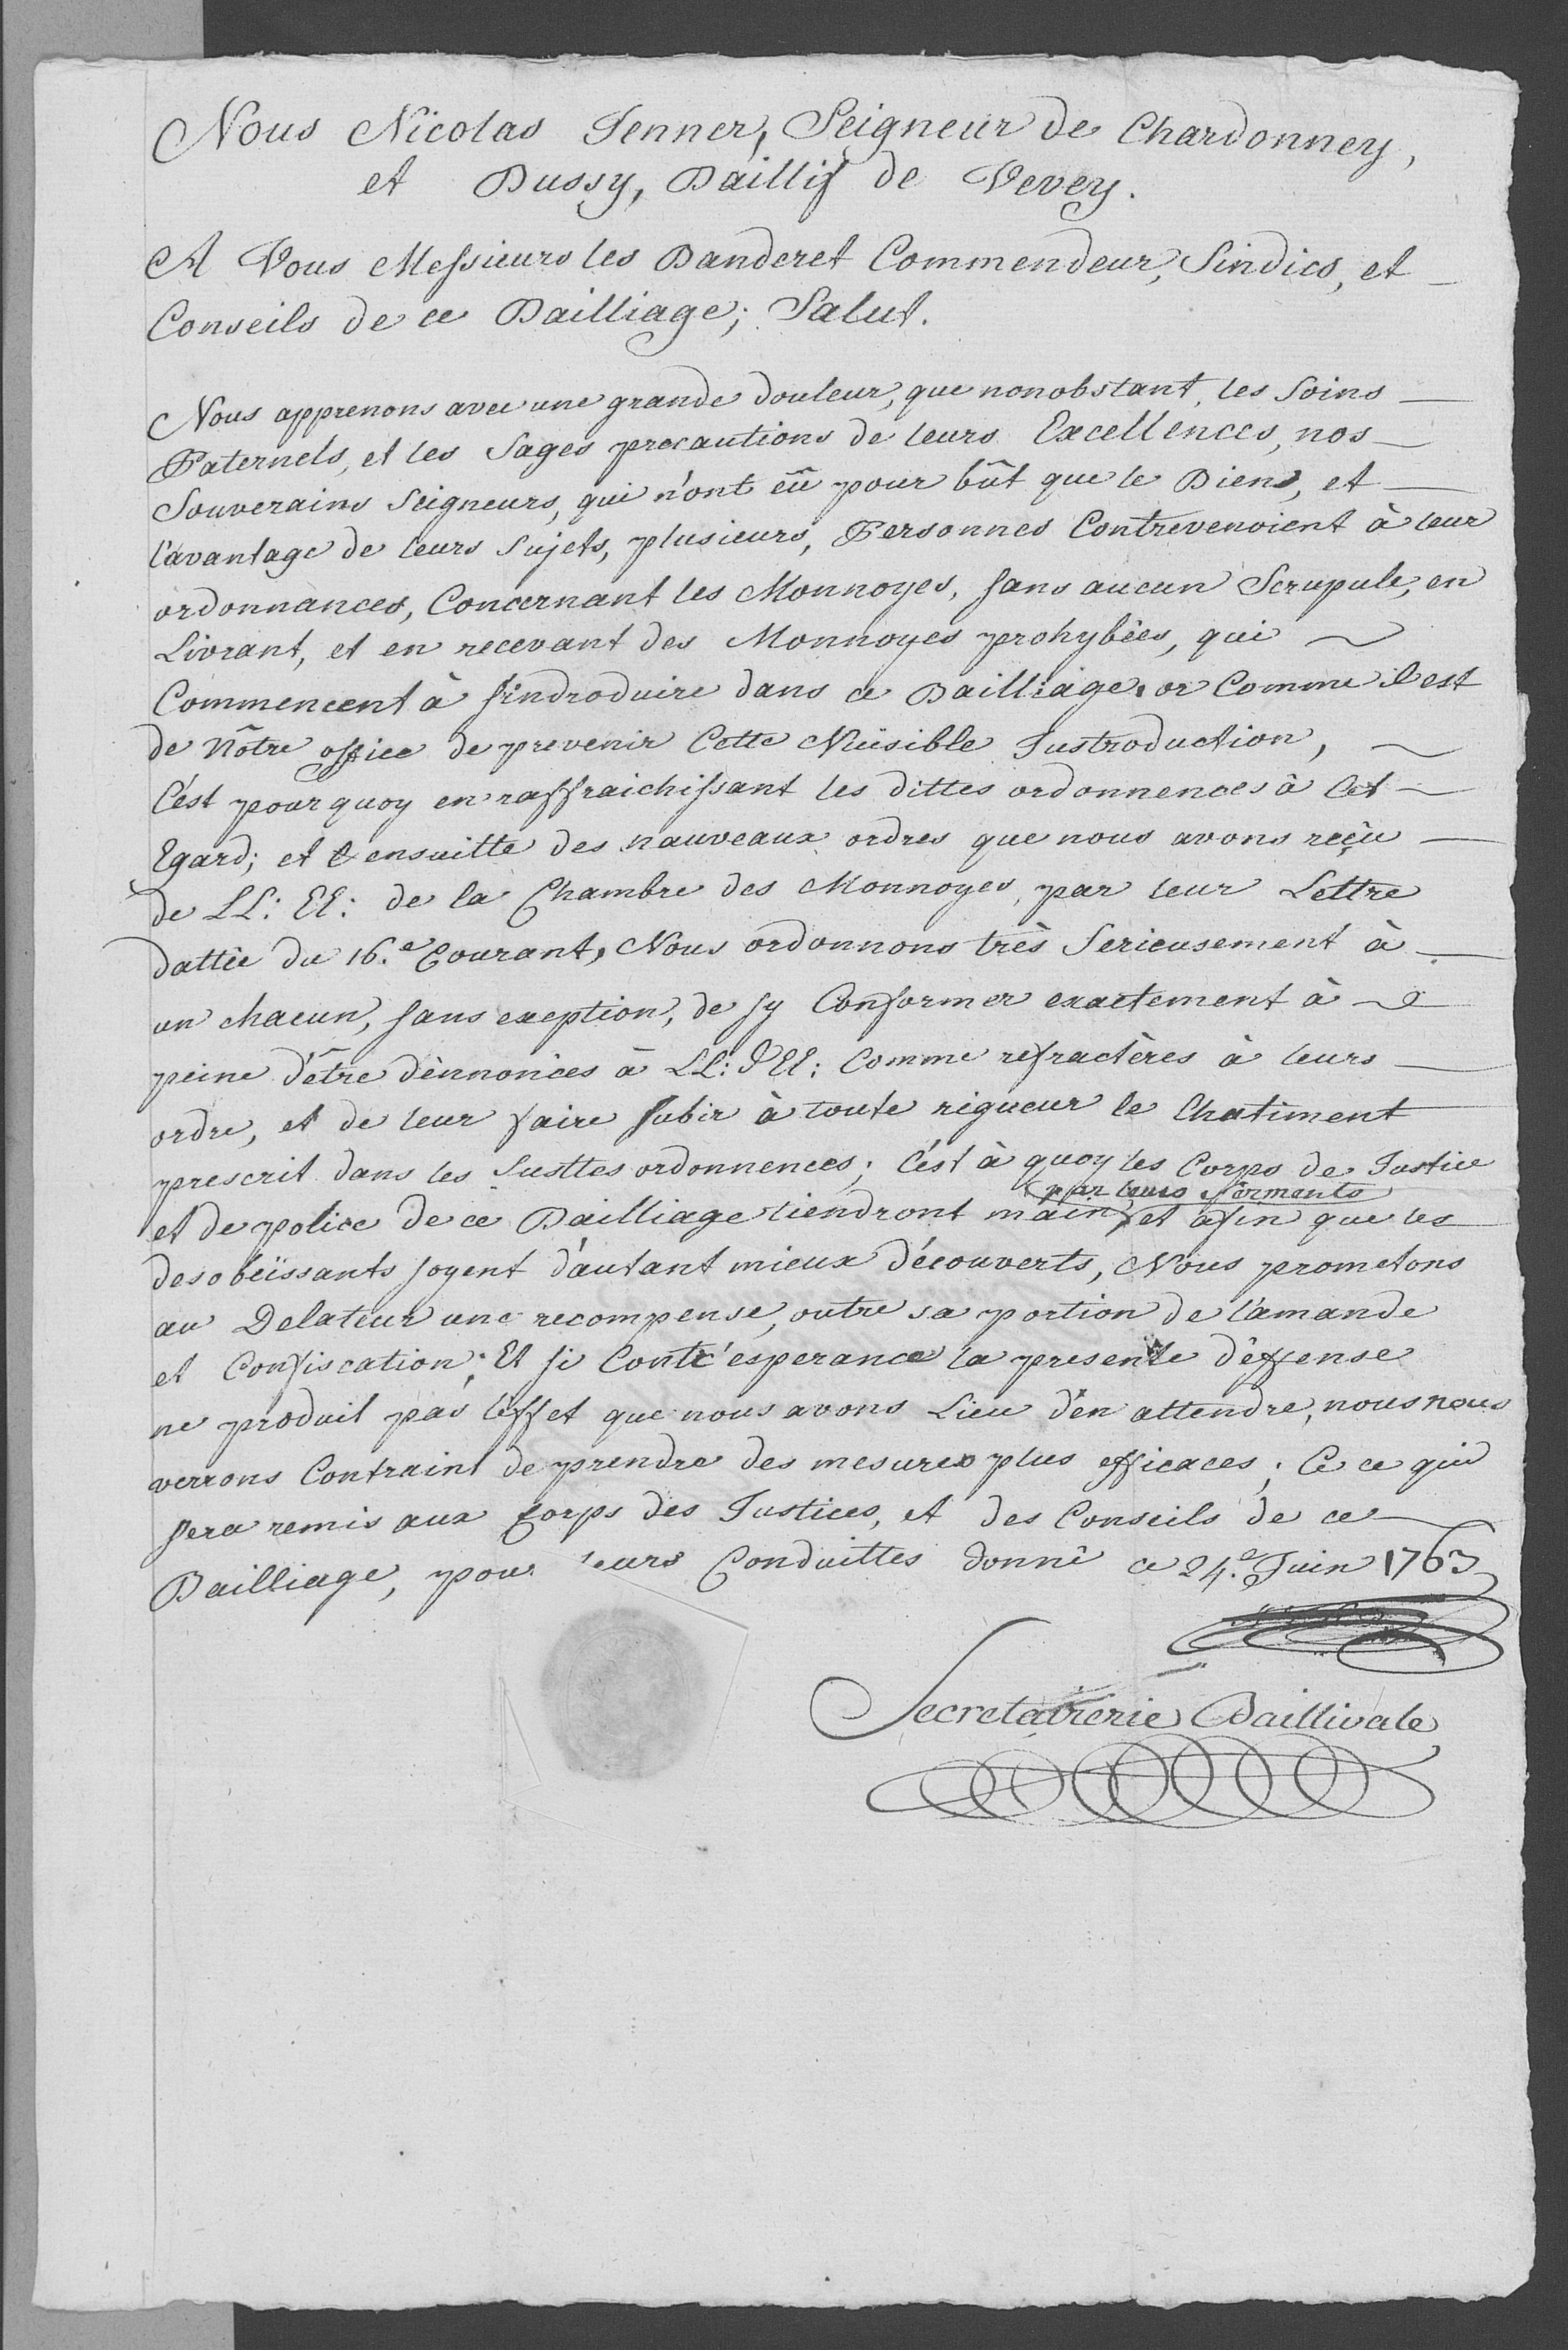 Nous Nicolas Jenner, Seigneur de Chardonney,
et Bussy, Baillif de Vevey.
A Vous Messieurs les Banderet Commendeur, Sindics, et
Conseils de ce Bailliage; Salut.
Nous apprenons avec une grande douleur, que nonobstant, les Soins
Paternels, et les Sages precautions de leurs Excellences, nos
Souverains Seigneurs, qui n'ont eû pour bût que le Bien, et
l'avantage de leurs Sujets, plusieurs, Personnes Contrevenoient à leur
ordonnances, Concernant les Monnoyes, sans aucun Scrupule, en
Livrant, et en recevant des Monnoyes prohybées, qui
Commencent à s'indroduire dans ce Bailliage. or Comme il est
de nôtre office de prevenir Cette Nuisible Justroduction,
C'ést pour quoy en raffraichissant les dittes ordonnences à Cet
Egard; et ensuitte des nauveaux ordres que nous avons reçu
de LL: EE: de la Chambre des Monnoyes, par leur Lettre
dattée du 16.e Courant, Nous ordonnons très Serieusement à
un chacun, sans exeption, de sy Conformer exactement à
peine d'être dènnoncés à LL: EE: Comme refractères à leurs
ordre, et de leur faire subir à toute rigueur le Chatiment
prescrit dans les Susttes ordonnences; C'ést à quoy les Corps de Justice
par leurs sermants
et de police de ce Bailliage tiendront main, et afin que les
desobeïssants soyent d'autant mieux découverts, Nous prometons
au Delateur une recompense, outre sa portion de l'amande
et Confiscation; Et si Contr'esperance la presente déffense
ne produit pas l'éffet que nous avons Lieu d'en attendre, nous nous
verrons Contraint de prendre des mesures plus efficaces; Ce ce qui
sera remis aux Corps des Justices, et des Conseils de ce
Bailliage, pour leurs Conduittes donné ce 24.e Juin 1763
Secretairerie Baillivale